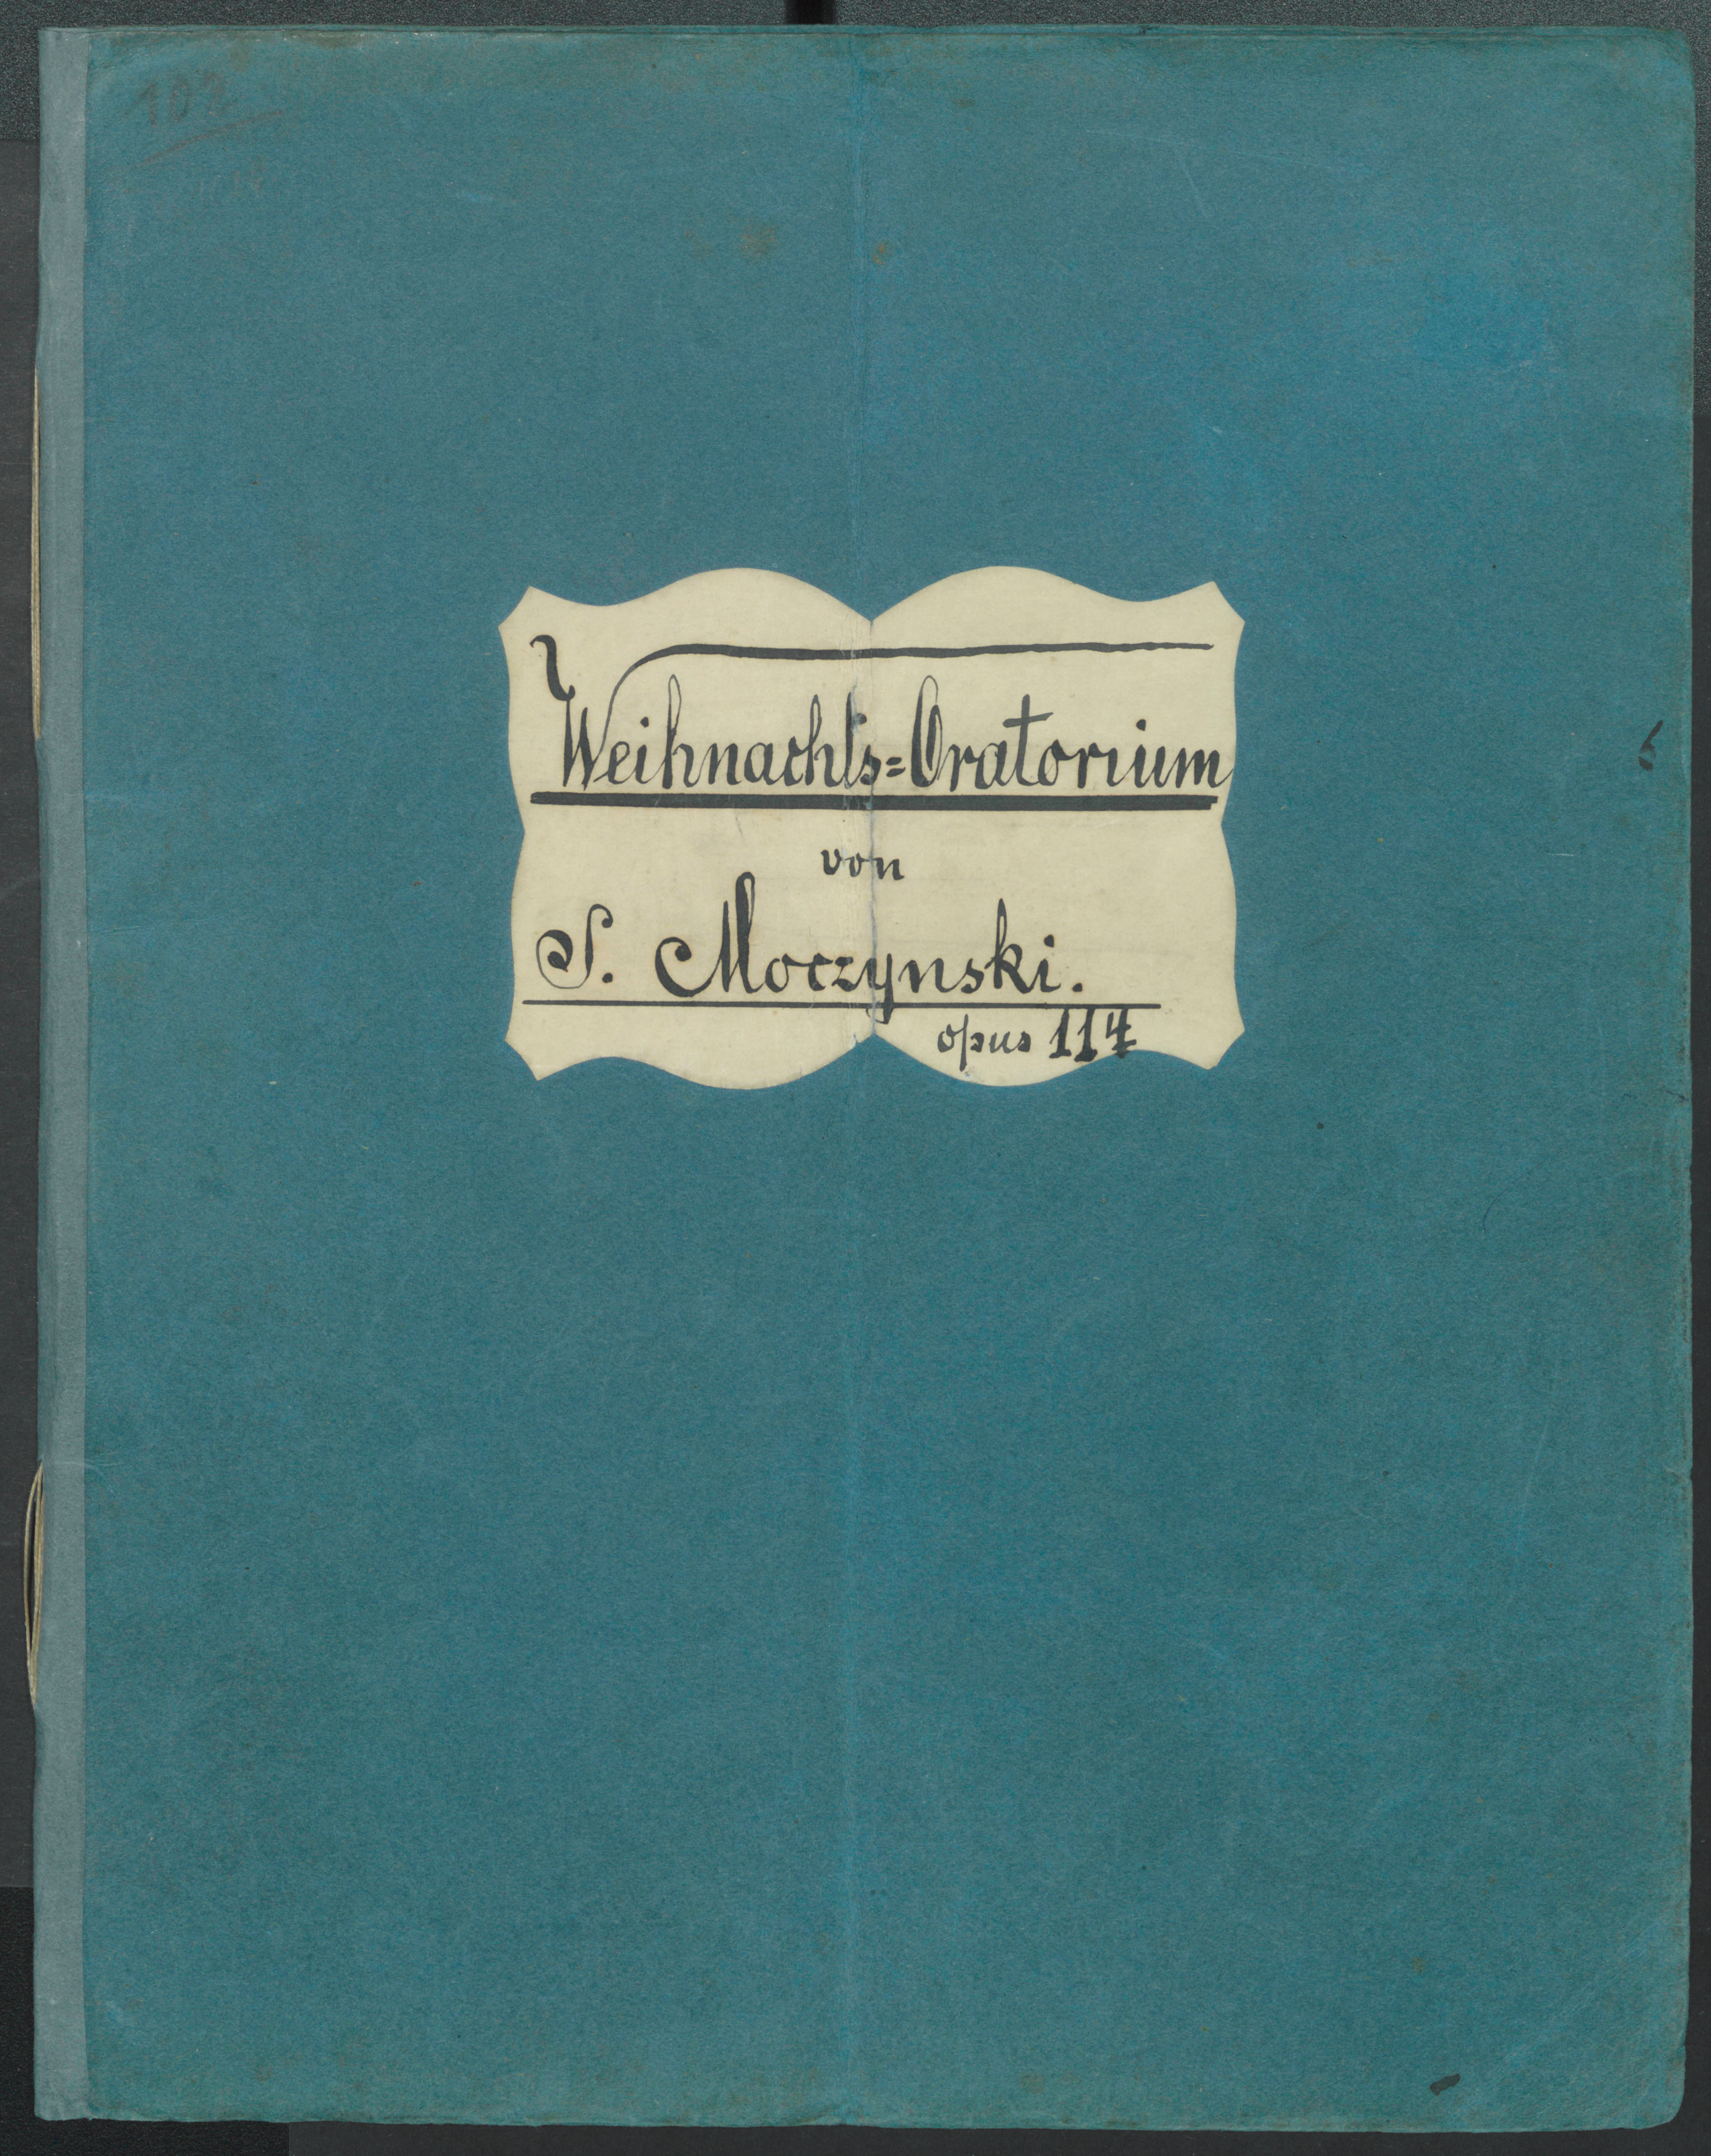 102
Weihnachts=Oratorium
von
S. Moczynski.
opus 114